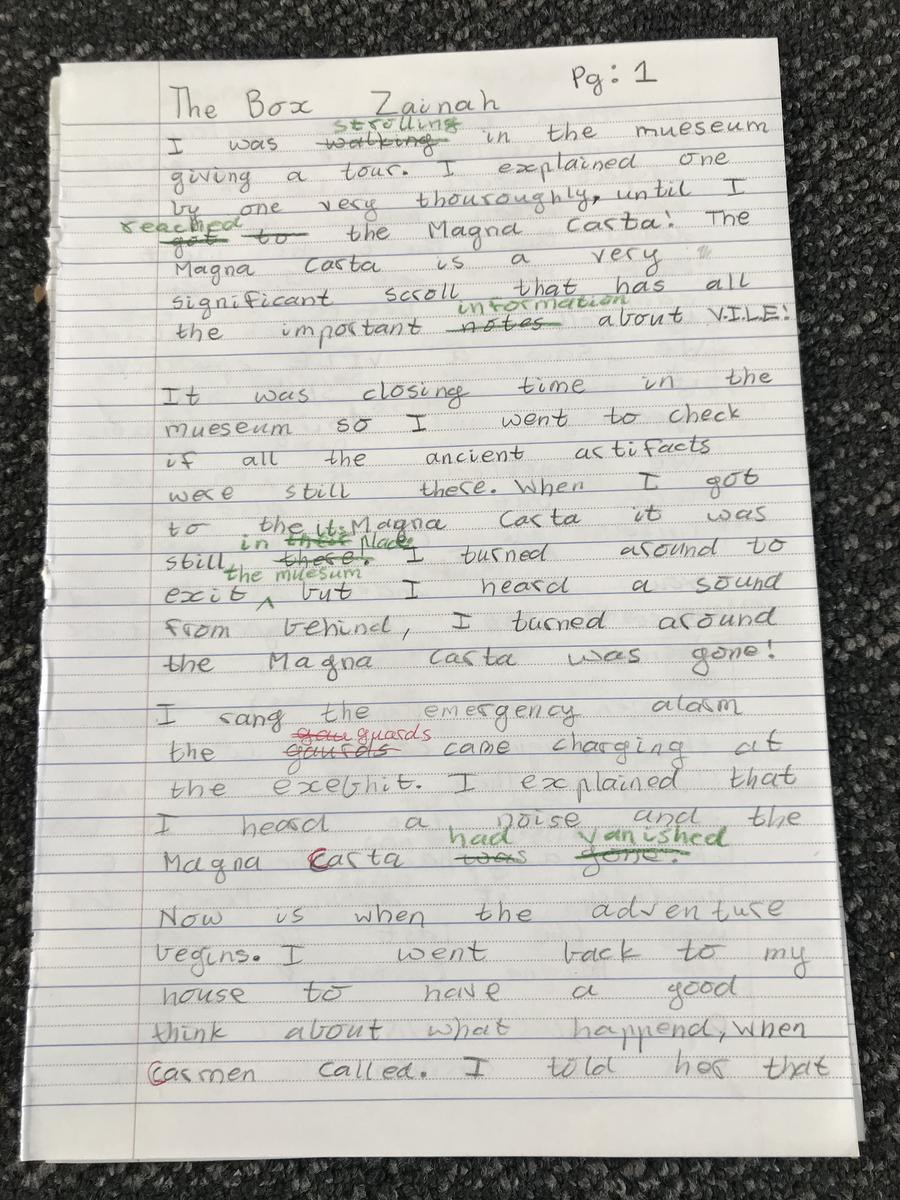 Pg: 1
The Box Zainah
strolling
I was walking in the mueseum
giving a tour. I explained one
by one very thouroughly, until I
reached
got to the Magna Carta! The
Magna Carta is a very
significant scroll that has all
information
the important notes about V.I.L.E!
It was closing time in the
mueseum so I went to check
if all the ancient artifacts
were still there. When I got
to the Magna Carta it was
in its place.
still there! I turned around to
the muesum
exit ^ but I heard a sound
from behind, I turned around
the Magna Carta was gone!
I rang the emergency alarm
guards
the gaurds came charging at
the exebhit. I explained that
I heard a noise and the
had vanished
Magna Carta was gone.
Now is when the adventure
begins. I went back to my
house to have a good
think about what happend, when
Carmen called. I told her that